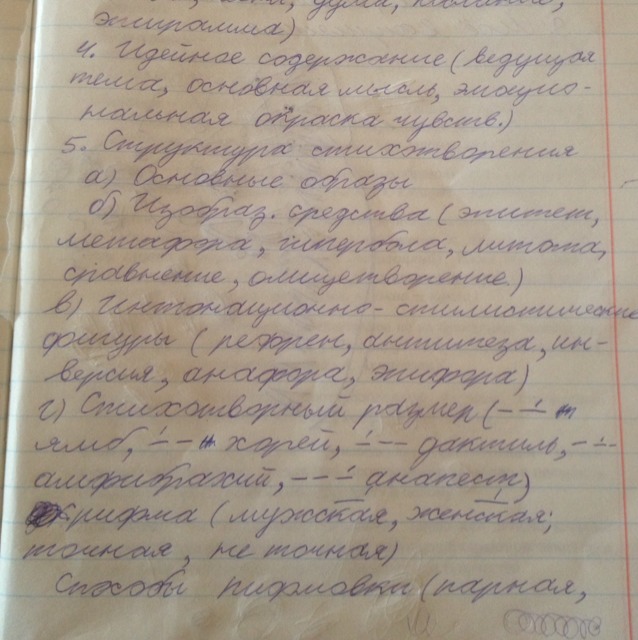 дума,
эпиграмма)
4. Идейное содержание (ведущая
тема, основная мысль, эмоцио-
нальная окраска чувств.)
5. Структура стихотворения
а) Основные образы
б) Изобраз. средства (эпитет,
метафора, гипербола, литота,
сравнение, олицетворение.)
в) Интонационно-стилистические
фигуры (рефрен, антитеза, ин-
версия, анафора, эпифора)
г) Стихотворный размер (–
ямб, хорей, дактиль,
амфибрахий, анапест)
рифма (мужская, женская;
точная, не точная)
Способы рифмовки (парная,